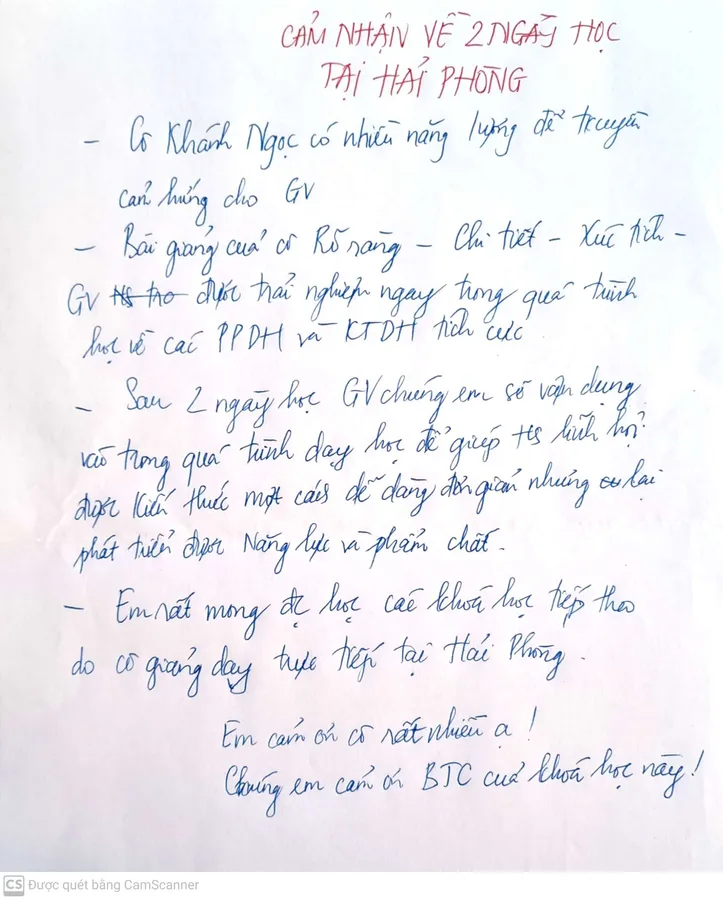 CẢM NHẬN VỀ 2 NGÀY HỌC
TẠI HẢI PHÒNG
- Cô Khánh Ngọc có nhiều năng lượng để truyền
cảm hứng cho GV
- Bài giảng của cô Rõ ràng - Chi tiết - Xúc tích -
GV được trải nghiệm ngay trong quá trình
học về các PPDH và KTDH tích cực
- Sau 2 ngày học GV chúng em sẽ vận dụng
vào trong quá trình dạy học để giúp HS lĩnh hội
được kiến thức một cách dễ dàng đơn giản nhưng lại
phát triển được Năng lực và phẩm chất.
- Em rất mong đc học các khoá học tiếp theo
do cô giảng dạy trực tiếp tại Hải Phòng.
Em cảm ơn cô rất nhiều ạ!
Chúng em cảm ơn BTC của khoá học này!
CS Được quét bằng CamScanner